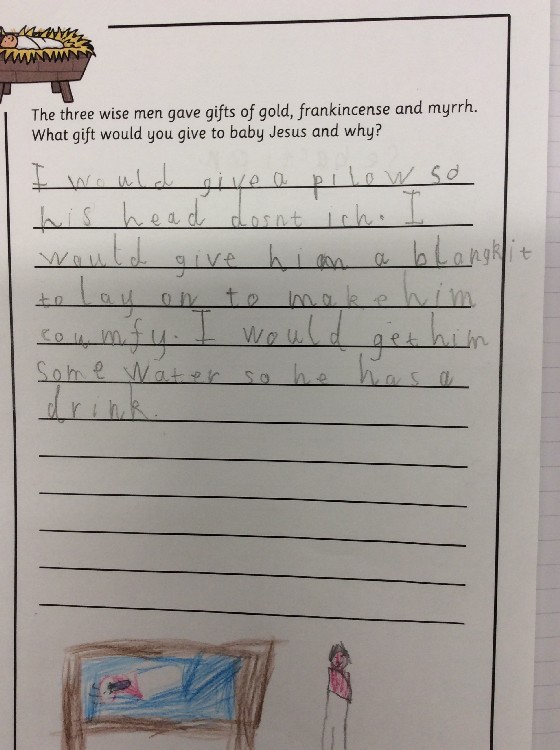 The three wise men gave gifts of gold, frankincense and myrrh.
What gift would you give to baby Jesus and why?
I would give a pilow so
his head dosnt ich. I
would give him a blangkit
to lay on to make him
coumfy. I would get him
some water so he has a
drink.